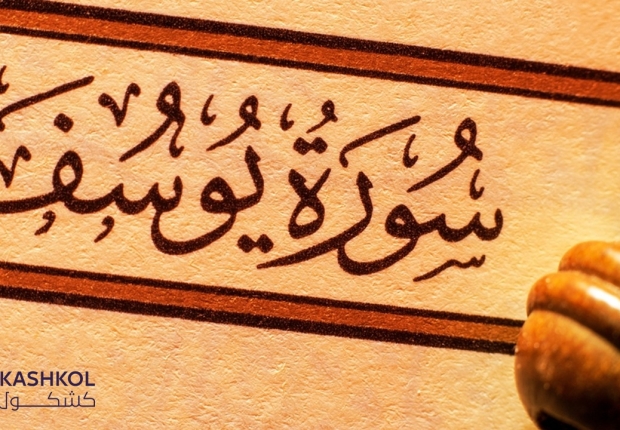 سُورَةُ يُوسُف
KASHKOL
كشكول